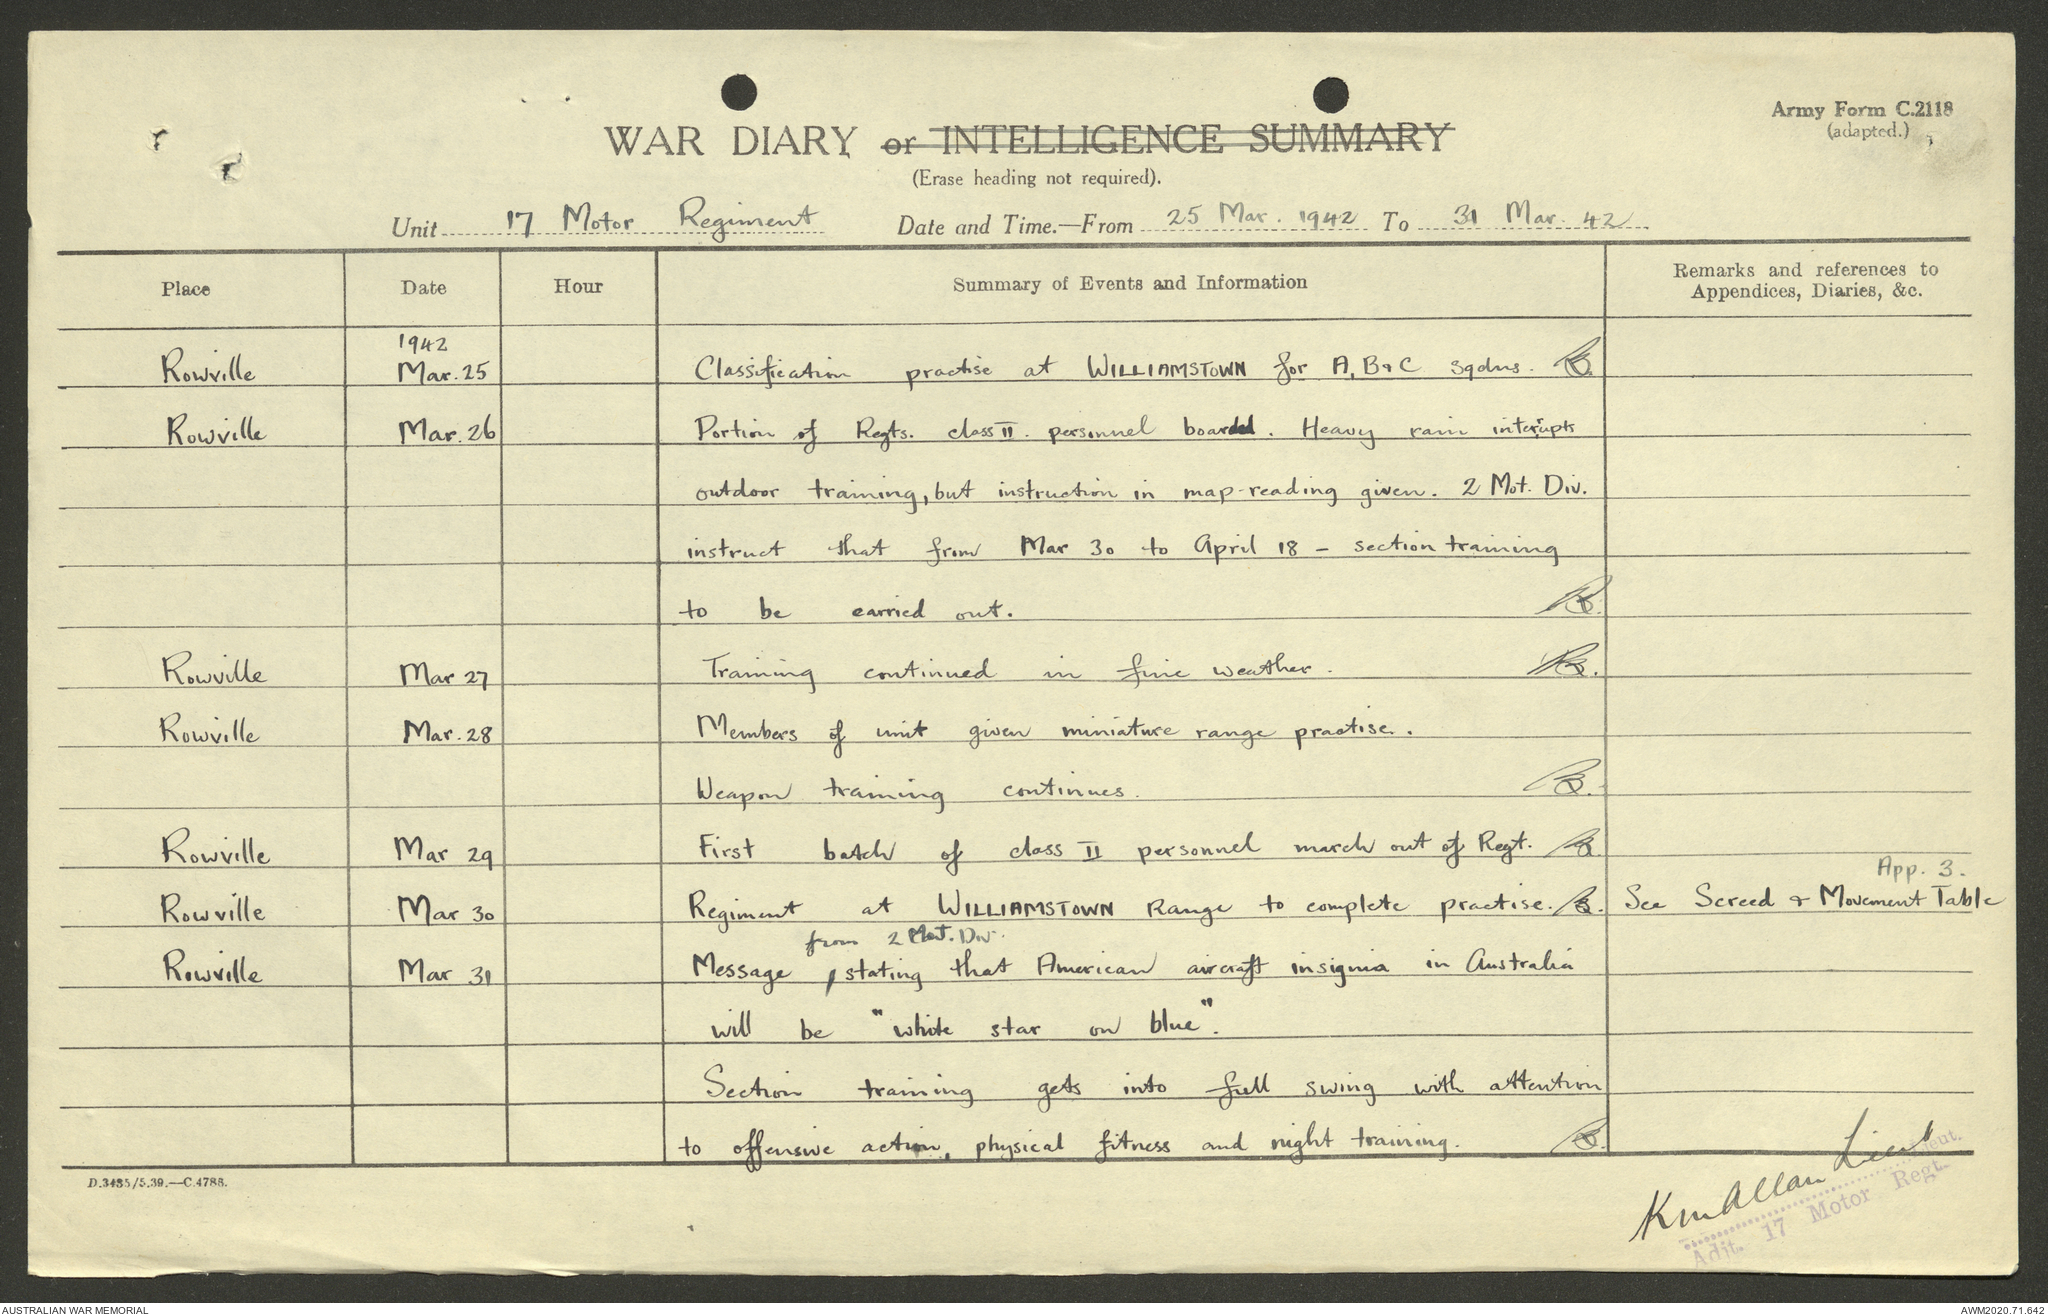 Army Form C.2118
(adapted.)
WAR DIARY or INTELLIGENCE SUMMARY
(Erase heading not required).
Unit 17 Motor Regiment Date and Time.—From 25 Mar. 1942 To 31 Mar. 42
Place Date Hour Summary of Events and Information Remarks and references to Appendices, Diaries, &c.
1942
Rowville Mar. 25 Classification practise at WILLIAMSTOWN for A, B & C Sqdns.
Rowville Mar. 26 Portion of Regts. class II. personnel boarded. Heavy rain interrupts
outdoor training, but instruction in map-reading given. 2 Mot. Div.
instruct that from Mar 30 to April 18 - section training
to be carried out.
Rowville Mar 27 Training continued in fine weather.
Rowville Mar. 28 Members of unit given miniature range practise.
Weapon training continues.
Rowville Mar 29 First batch of class II personnel march out of Regt.
App. 3.
Rowville Mar 30 Regiment at WILLIAMSTOWN Range to complete practise. See Screed & Movement Table
from 2 Mot. Div.
Rowville Mar 31 Message, stating that American aircraft insignia in Australia
will be "white star on blue".
Section training gets into full swing with attention
to offensive action, physical fitness and night training.
D.3435/5.39.—C.4788.
KmAllan Lieut
Lieut.
Adjt. 17 Motor Regt.
AUSTRALIAN WAR MEMORIAL
AWM2020.71.642